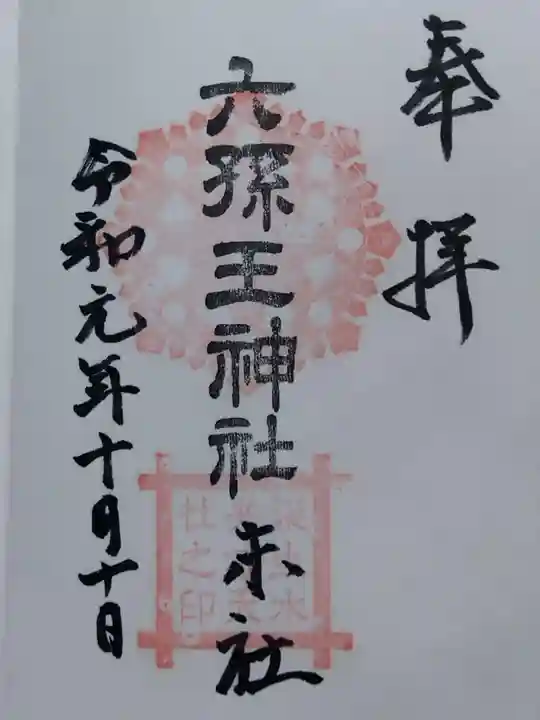 奉拝
六孫王神社
末社
令和元年十月十日
社之印